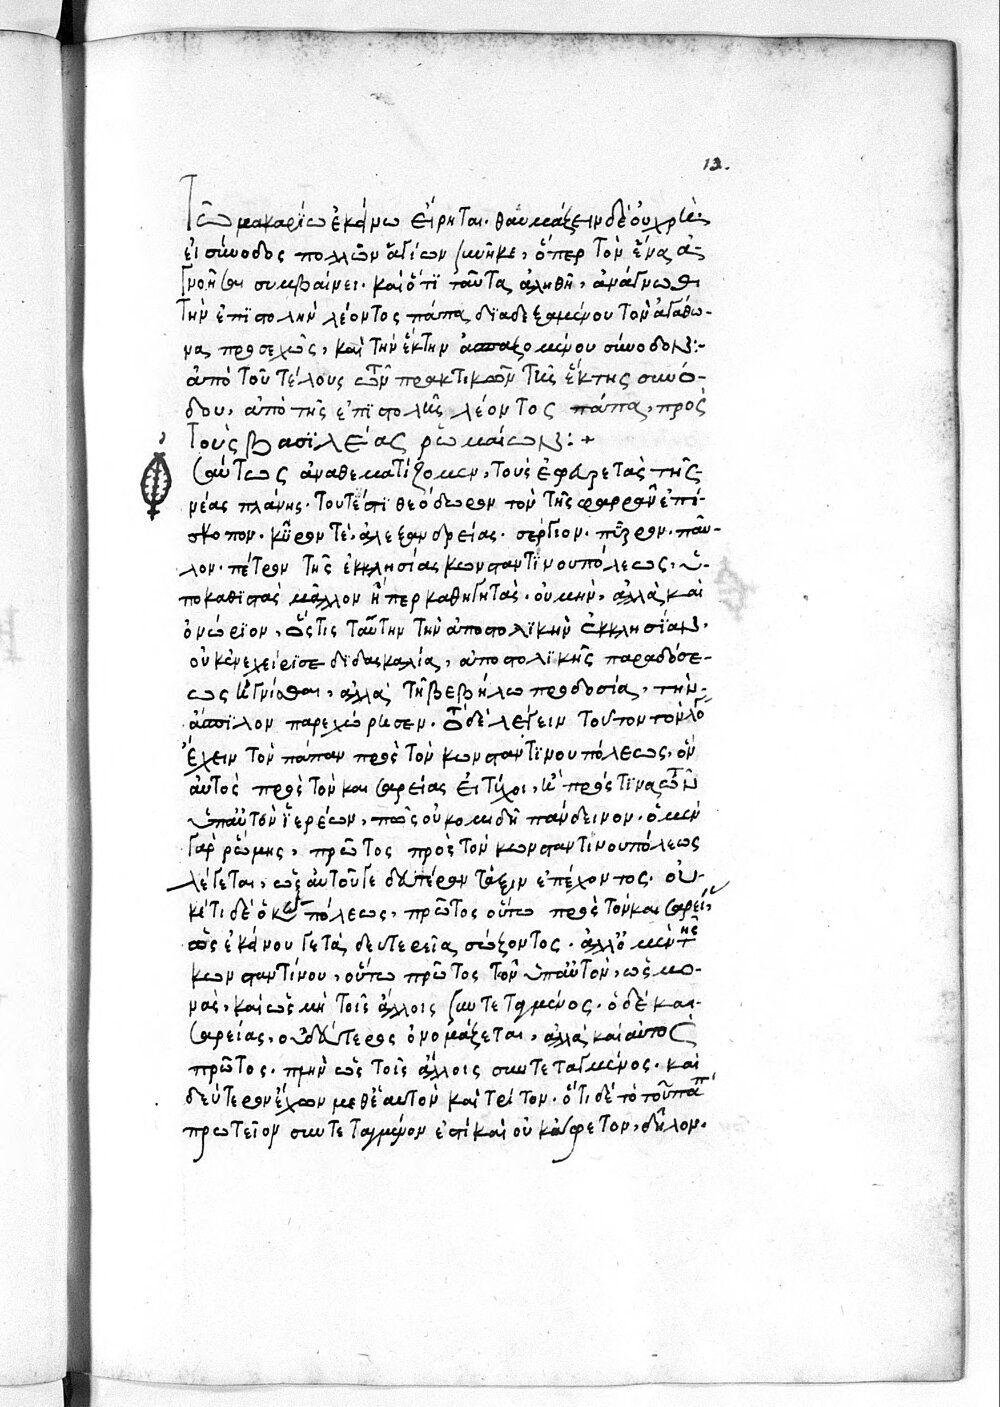 13.
Τῶ μακαρίω ἐκείνω εἴρηται· θαυμάζειν δὲ οὐ χρὴ·
εἰ σύνοδος πολλῶν ἁγίων , ὅπερ τὸν ἕνα ἀ-
γνοῆσαι συμβαίνει· καὶ ὅτι ταῦτα ἀληθῆ, ἀνάγνωθι
τὴν ἐπιστολὴν λέοντος πάπα διαδεξαμένου τὸν ἀγάθω-
νας προσεχῶς, καὶ τὴν ἕκτην ἀσπαζομένου σύνοδον:-
ἀπὸ τοῦ τέλους τῶν πρακτικῶν τῆς ἕκτης συνό-
δου, ἀπὸ τῆς ἐπιστολῆς λέοντος πάπα, πρὸς
τοὺς βασιλέας ῥωμαίων:+
οὕτως ἀναθεματίζομεν, τοὺς ἐφευρετὰς τῆς
νέας πλάνης· τουτέστι θεόδωρον τὸν τῆς φαρρᾶν ἐπί-
σκοπον· κῦρον τὲ, ἀλεξανδρείας· σέργιον· πύρρον· παῦ-
λον· πέτρον τῆς ἐκκλησίας κωνσταντινουπόλεως, ὑ-
ποκαθιστὰς μᾶλλον ἤπερ καθηγητὰς· οὐ μὴν, ἀλλὰ καὶ
ὀνώριον, ὅστις ταύτην τὴν ἀποστολικὴν ἐκκλησίαν,
οὐκ ἐνεχείρισε διδασκαλία, ἀποστολικῆς παραδόσε-
ως ἁγνίσαι, ἀλλὰ τῆ βεβήλω προδοσία, τὴν
ἄσπιλον παρεχώρησεν· τὸ δὲ λέγειν τοῦτον τὸν λό
ἔχειν τὸν πάπαν πρὸς τὸν κωνσταντινουπόλεως, ὃν
αὐτὸς πρὸς τὸν καισαρείας εἰ τύχοι, καὶ πρός τινας τῶν
ὑπ' αὐτὸν ἱερέων, πῶς οὐ κομιδῆ πάνδεινον· ὁ μὲν
γὰρ ῥώμης, πρῶτος πρὸς τὸν κωνσταντινουπόλεως
λέγεται, ὡς αὐτοῦ γε δευτέραν τάξιν ἐπέχοντος· οὐ-
κέτι δὲ ὁ κων πόλεως, πρῶτος οὕτω πρὸς τὸν καισαρεί,
ὡς ἐκείνου γε τὰ δευτερεῖα σώζοντος· ἀλλ' ὁ μὲν τῆς
κωνσταντίνου, οὕτω πρῶτος τῶν ὑπ' αὐτὸν, ὡς μο-
νὰς, καὶ ὡς μὴ τοῖς ἄλλοις συντεταγμένος· ὁ δὲ και-
σαρείας, οὐ δεύτερος ὀνομάζεται, ἀλλὰ καὶ αὐτὸς
πρῶτος· πλὴν ὡς τοῖς ἄλλοις συντεταγμένος· καὶ
δεύτερον ἔχων μεθ' ἑαυτὸν καὶ τρίτον· ὅτι δὲ τὸ τοῦ πάπ
πρωτεῖον συντεταγμένον ἐστὶ καὶ οὐκ , δῆλον·